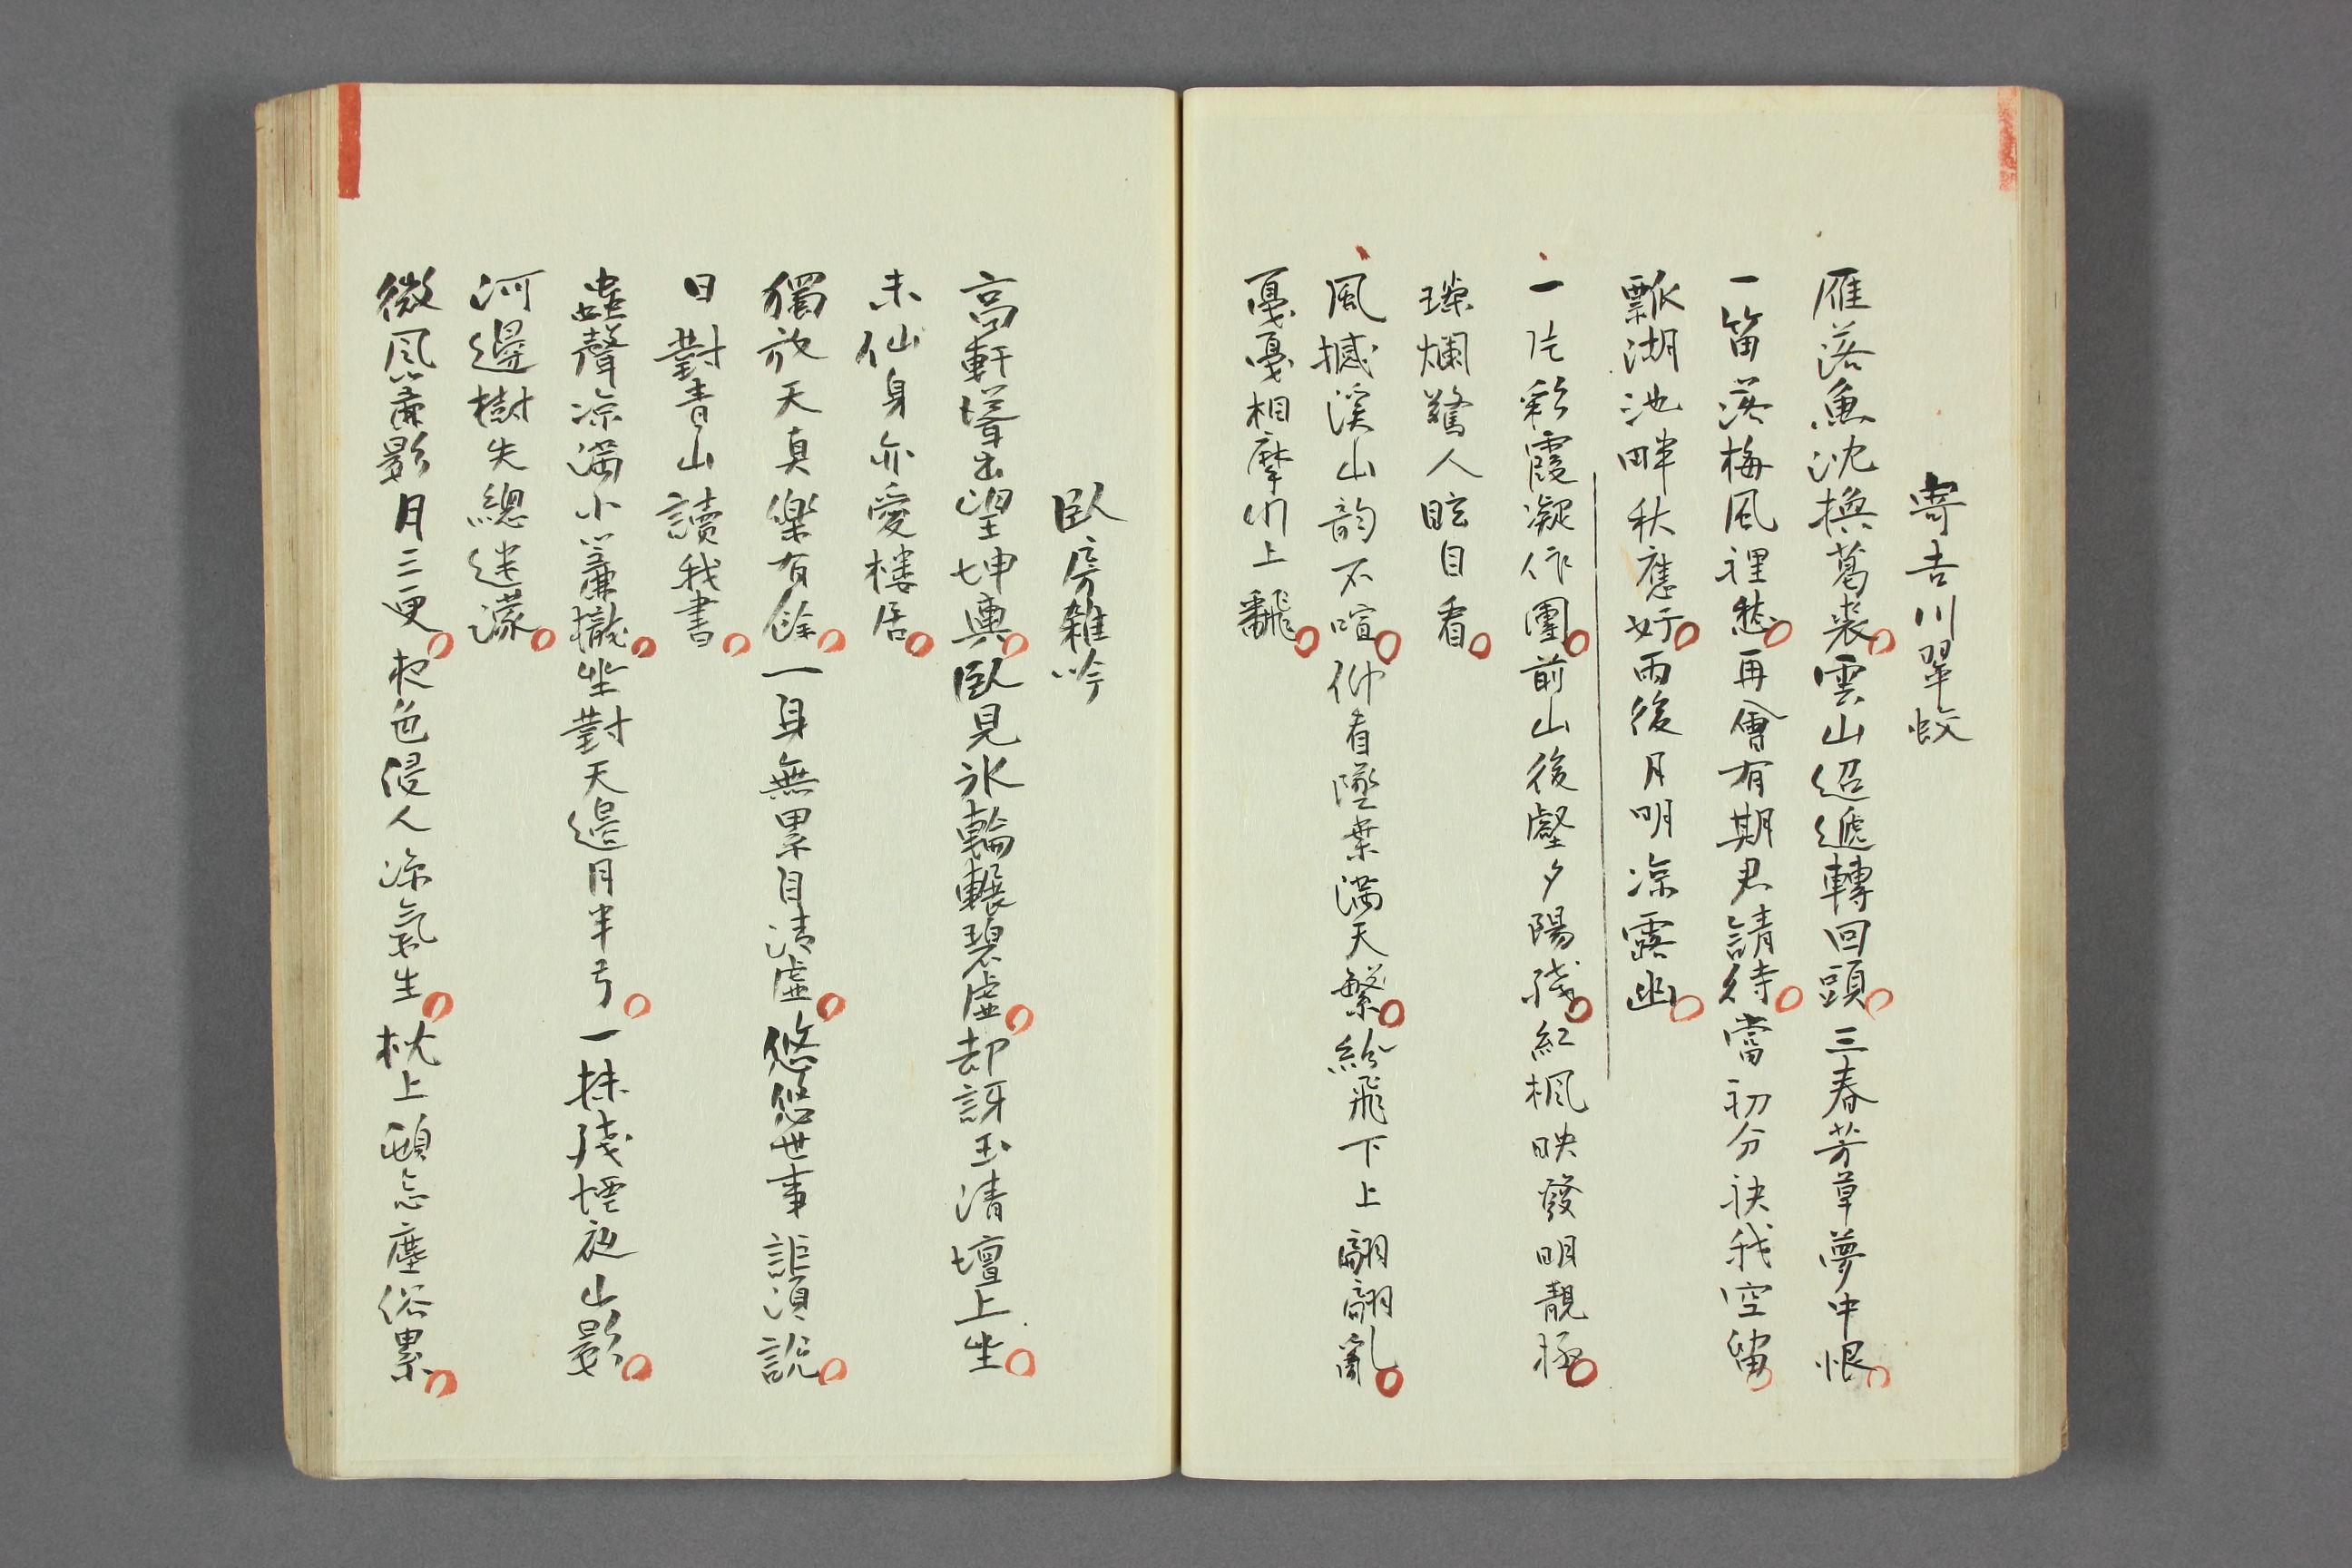 寄吉川翠蛟
雁落魚沈換葛裘雲山迢遞轉回頭三春芳草夢中恨
一笛落梅風裡愁再會有期君請待當初分袂我空留
瓢湖池畔秋應好雨後月明涼露幽
一片彩霞凝作團前山後壑夕陽殘紅楓映發明靚極
璨爛驚人眩目看
風撼溪山韵不喧仰看墜葉滿天繁紛飛下上翩翩亂
戛戛相摩川上飜
臥房雜吟
高軒聳出望坤輿臥見氷輪輾碧虛却訝玉清壇上坐
未仙身亦愛樓居
獨放天真樂有餘一身無累自清虛悠悠世事詎須說
日對青山讀我書
蛩聲凉滿小簾櫳坐對天邉月半弓一抹殘煙夜山影
河邊樹失總迷濛
微風簾影月三更夜色侵人凉氣生枕上頓忘塵俗累